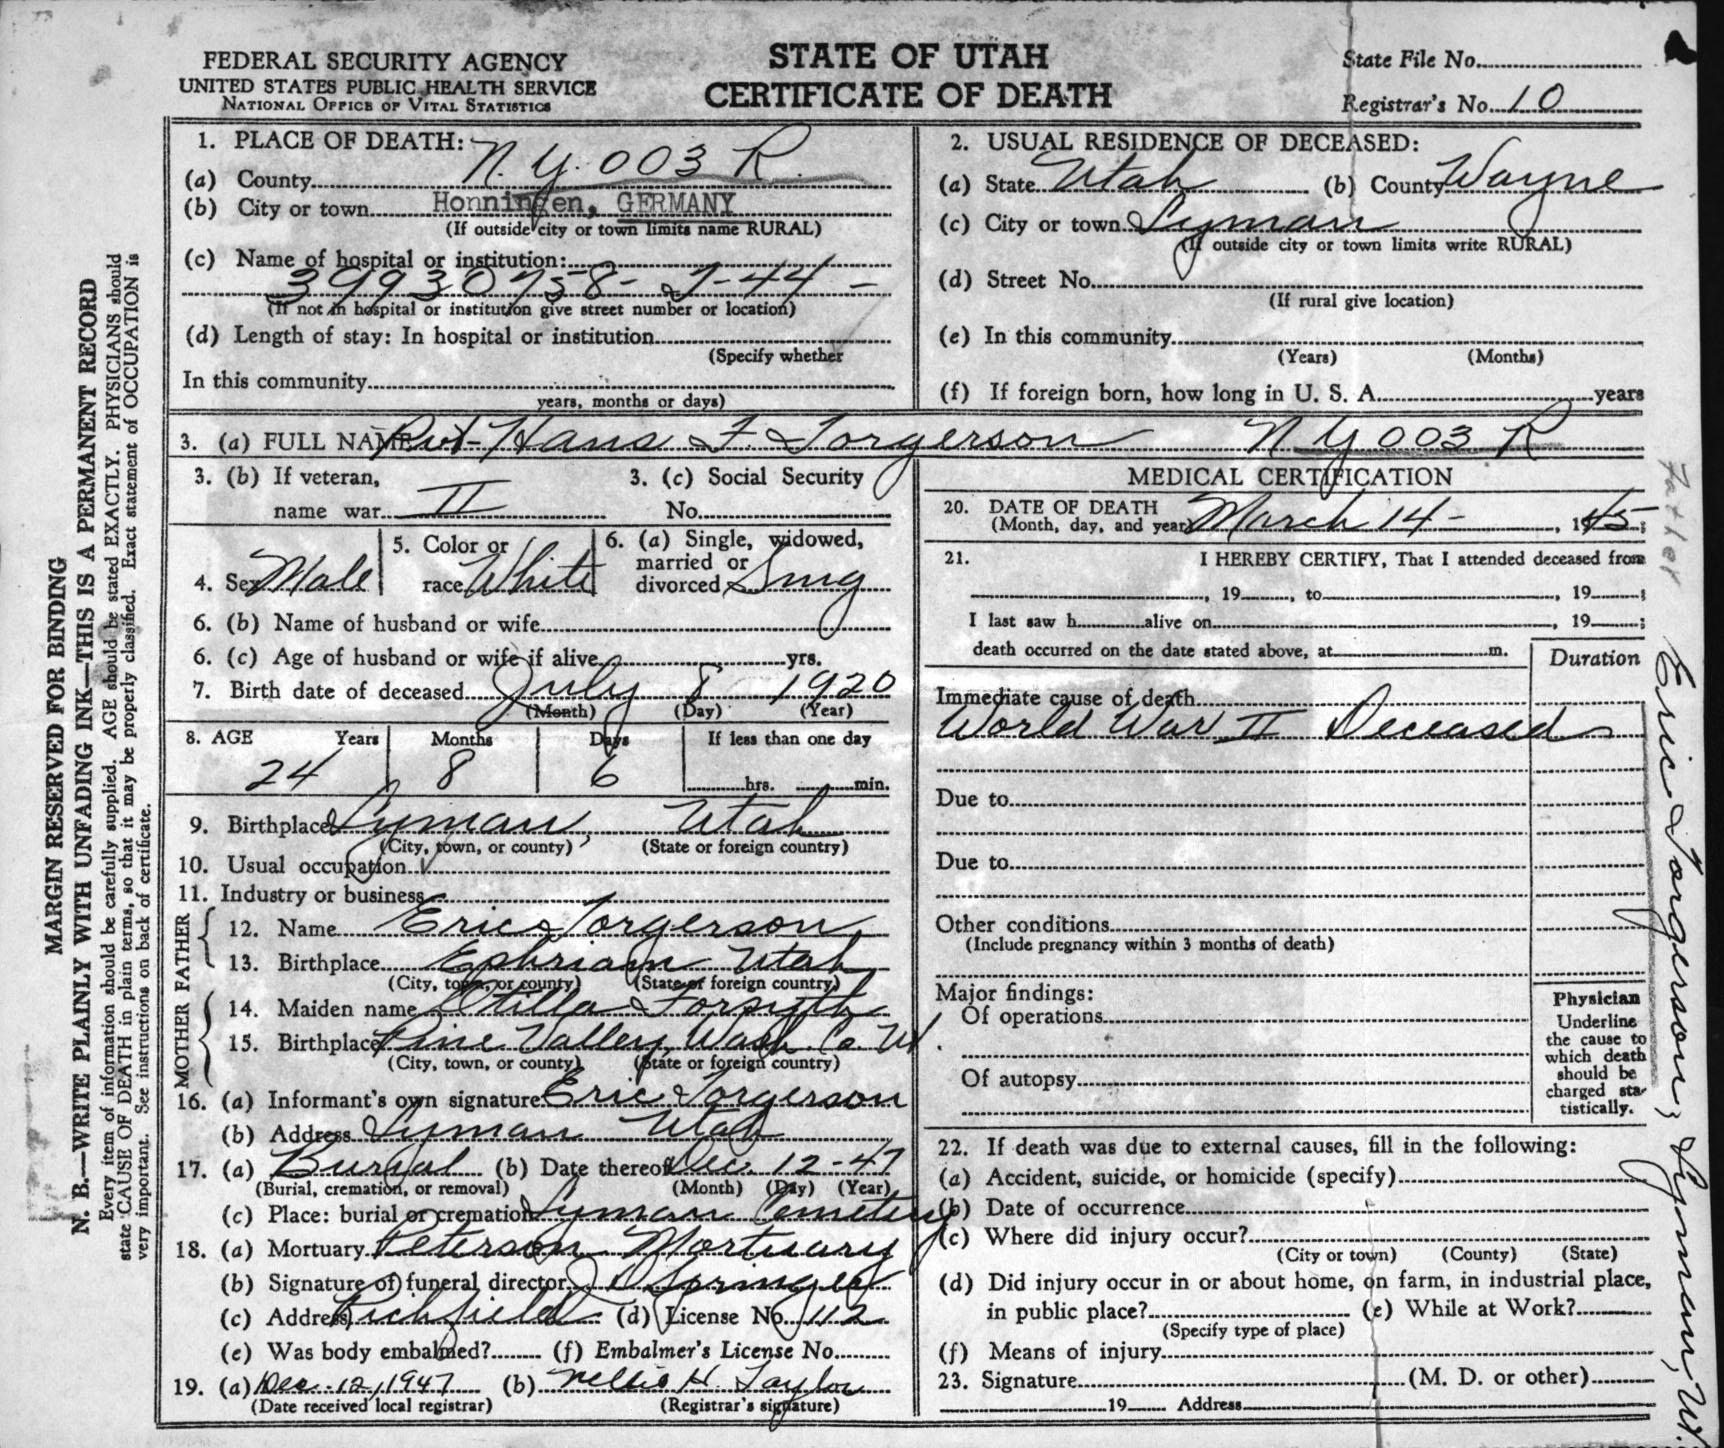 FEDERAL SECURITY AGENCY
UNITED STATES PUBLIC HEALTH SERVICE
NATIONAL OFFICE OF VITAL STATISTICS
STATE OF UTAH
CERTIFICATE OF DEATH
State File No.
Registrar's No. 10
1. PLACE OF DEATH: N.Y. 003 R.
(a) County
(b) City or town Honningen, GERMANY
(If outside city or town limits name RURAL)
(c) Name of hospital or institution:
39930758- T-44 -
(If not in hospital or institution give street number or location)
(d) Length of stay: In hospital or institution
(Specify whether
In this community
years, months or days)
2. USUAL RESIDENCE OF DECEASED:
(a) State Utah (b) County Wayne
(c) City or town Lyman
(If outside city or town limits write RURAL)
(d) Street No.
(If rural give location)
(e) In this community
(Years) (Months)
(f) If foreign born, how long in U. S. A. years
3. (a) FULL NAME Pvt- Hans F. Torgerson N Y 003 R
3. (b) If veteran,
name war II
3. (c) Social Security
No.
4. Sex Male
5. Color or
race White
6. (a) Single, widowed,
married or
divorced Sing
6. (b) Name of husband or wife
6. (c) Age of husband or wife if alive yrs.
7. Birth date of deceased July 8 1920
(Month) (Day) (Year)
8. AGE Years Months Days If less than one day
24 8 6 hrs. min.
9. Birthplace Lyman, Utah
(City, town, or county) (State or foreign country)
10. Usual occupation
11. Industry or business
FATHER
12. Name Eric Torgerson
13. Birthplace Ephriam Utah
(City, town, or county) (State or foreign country)
MOTHER
14. Maiden name Otilla Forsyth
15. Birthplace Pine Valley Wash. Co. Ut.
(City, town, or county) (State or foreign country)
16. (a) Informant's own signature Eric Torgerson
(b) Address Lyman Utah
17. (a) Burial (b) Date thereof Dec. 12-47
(Burial, cremation, or removal) (Month) (Day) (Year)
(c) Place: burial or cremation Lyman Cemetery
18. (a) Mortuary Peterson Mortuary
(b) Signature of funeral director Springer
(c) Address Richfield (d) License No. 112
(e) Was body embalmed? (f) Embalmer's License No.
19. (a) Dec. 12, 1947 (b) Nellie H. Taylor
(Date received local registrar) (Registrar's signature)
MEDICAL CERTIFICATION
20. DATE OF DEATH
(Month, day, and year) March 14- , 1945;
21. I HEREBY CERTIFY, That I attended deceased from
, 19 , to , 19 ;
I last saw h alive on , 19 ;
death occurred on the date stated above, at m.
Duration
Immediate cause of death
World War II Deceased
Due to
Due to
Other conditions
(Include pregnancy within 3 months of death)
Major findings:
Of operations
Of autopsy
Physician
Underline
the cause to
which death
should be
charged sta-
tistically.
22. If death was due to external causes, fill in the following:
(a) Accident, suicide, or homicide (specify)
(b) Date of occurrence
(c) Where did injury occur?
(City or town) (County) (State)
(d) Did injury occur in or about home, on farm, in industrial place,
in public place? (e) While at Work?
(Specify type of place)
(f) Means of injury
23. Signature (M. D. or other)
19 Address
MARGIN RESERVED FOR BINDING
N. B.—WRITE PLAINLY WITH UNFADING INK—THIS IS A PERMANENT RECORD
Every item of information should be carefully supplied. AGE should be stated EXACTLY. PHYSICIANS should
state CAUSE OF DEATH in plain terms, so that it may be properly classified. Exact statement of OCCUPATION is
very important. See instructions on back of certificate.
Father Eric Torgerson; Lyman, Ut.